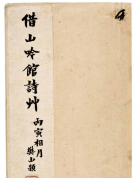 借山吟館詩艸
丙寅相月
樊山題